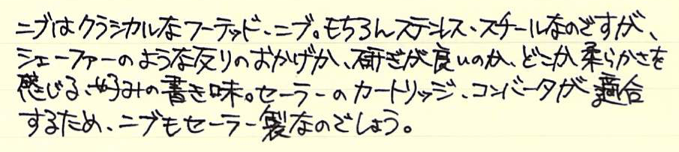 ニブはクラシカルなフーデッド・ニブ。もちろんステンレス・スチールなのですが、
シェーファーのような反りのおかげか、研ぎが良いのか、どこか柔らかさを
感じる、好みの書き味。セーラーのカートリッジ、コンバータが適合
するため、ニブもセーラー製なのでしょう。